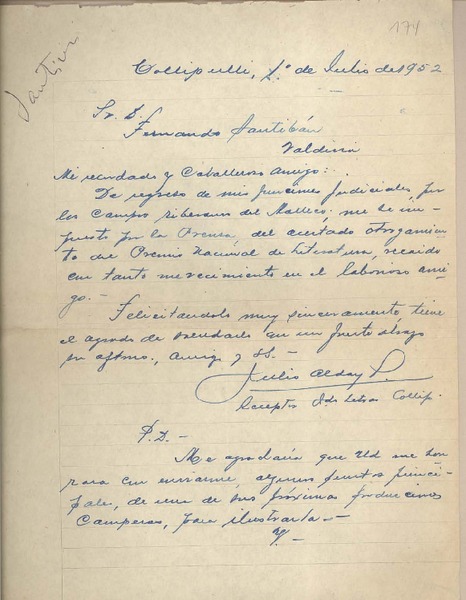 174
Santiván
Collipulli, 1º de Julio de 1952
Sr. D.
Fernando Santiván
Valdivia
Mi recordado y Caballeroso amigo:
De regreso de mis funciones judiciales, por
los campos ribereños del Malleco, me he im-
puesto por la Prensa, del acertado otorgamien-
to del Premio Nacional de Literatura, recaido
con tanto merecimiento en el laborioso ami-
go.-
Felicitandolo muy sinceramente, tiene
el agrado de saludarlo en un fuerte abrazo
su afftmo., amigo y SS.-
Julio Alday P.
Receptor Jdo Letras Collip.
P.D.-
Me agradaría que Ud me hon
rara con enviarme, algunos puntos princi-
pale, de una de sus próximas producciones
Camperas, para ilustrarla.-
V.-